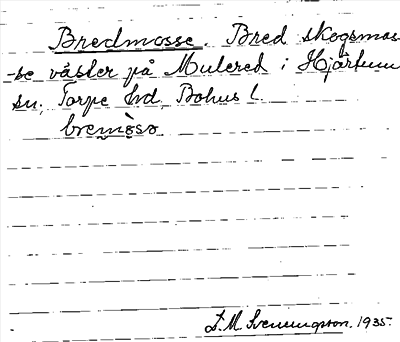 Bredmosse. Bred skogsmos
-se väster på Mulered i Hjärtum
sn, Torpe hd, Bohus l.
bremåsə
J. M. Svenungson. 1935.